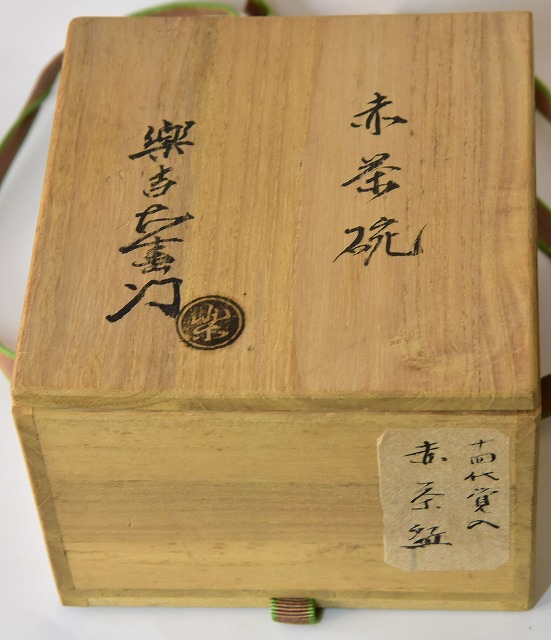 赤茶碗
樂吉左衛門
十四代覚入
赤茶碗